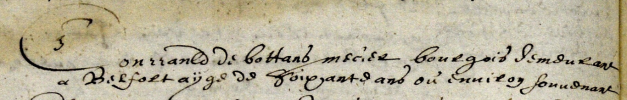 3
Conrrauld de bottans mecier bourgois demeurant
a Belfort aÿge de Soixante ans ou environ souvenant